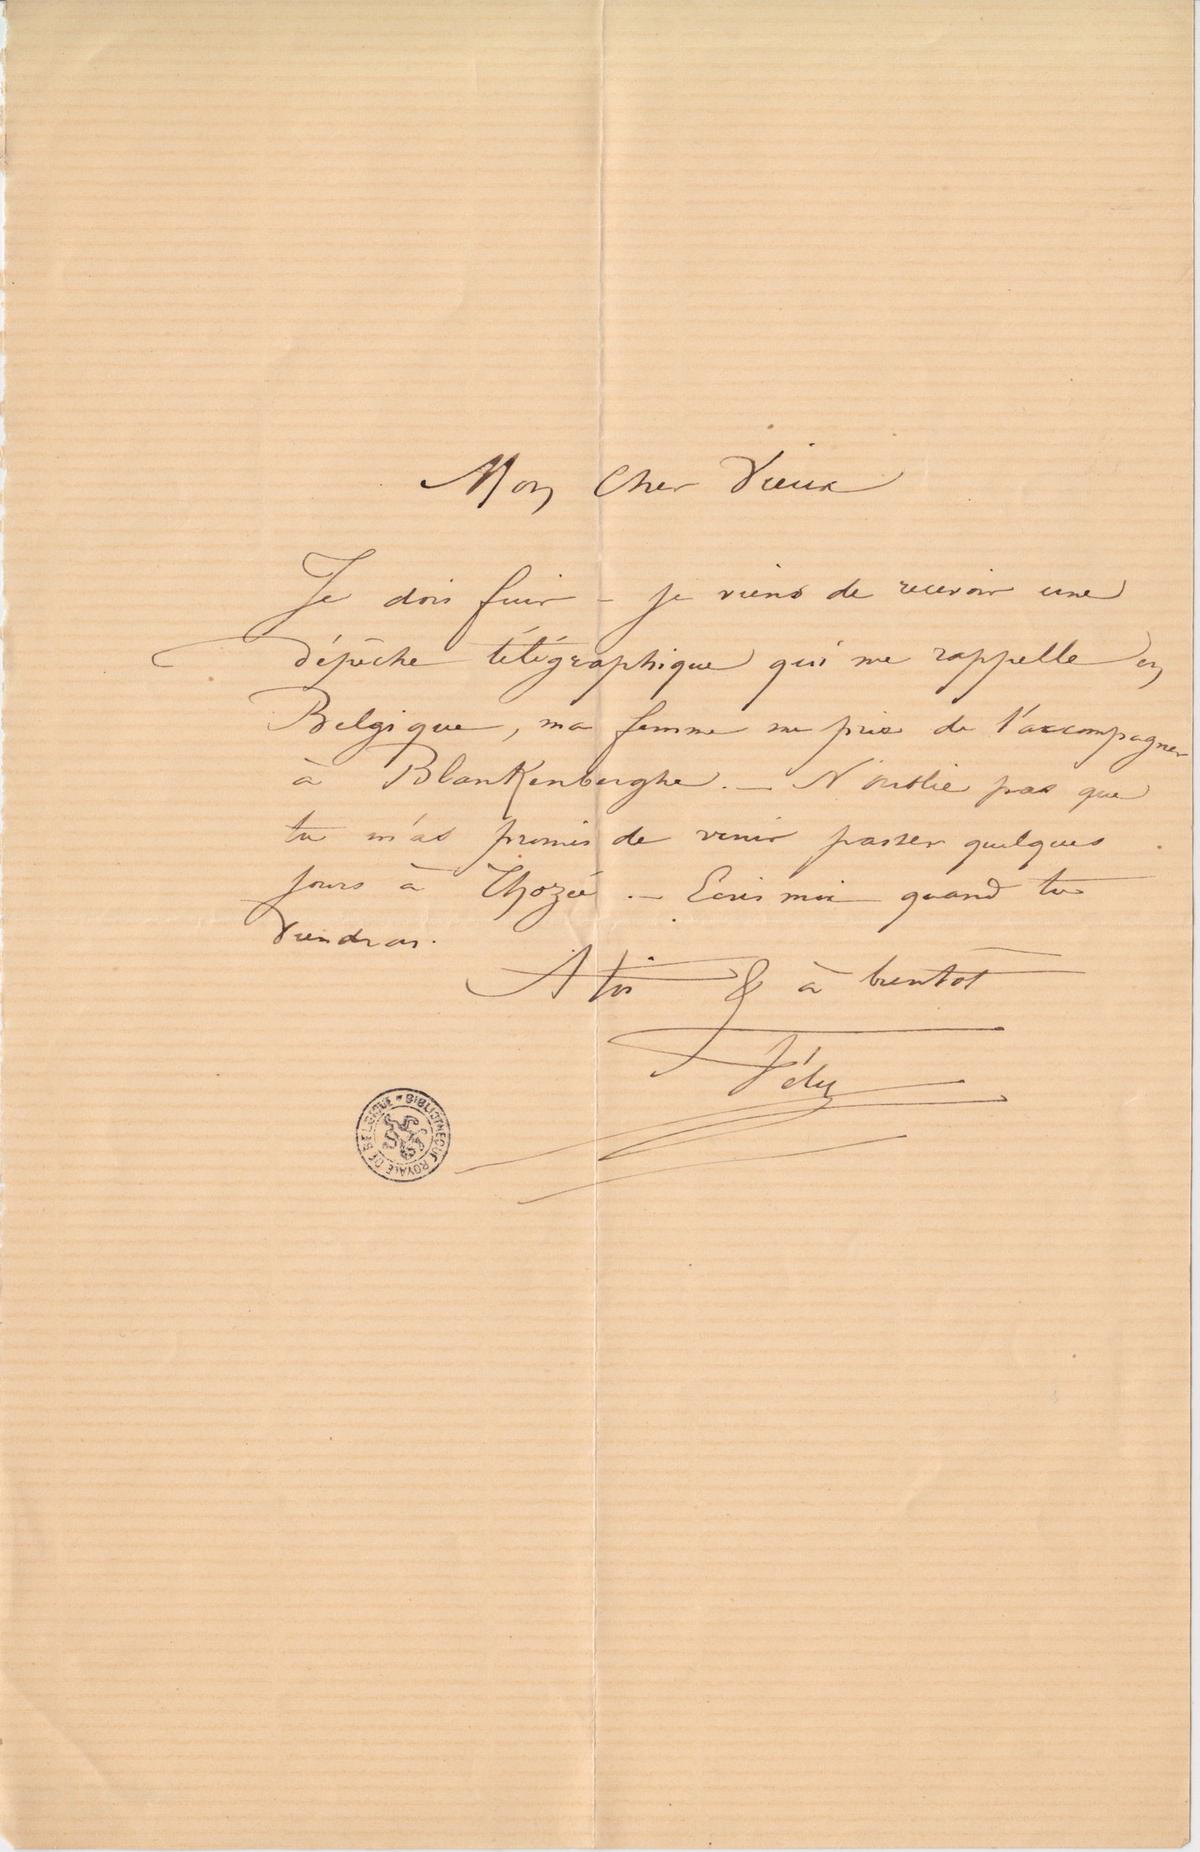 Mon Cher Vieux
Je dois fuir – je viens de recevoir une
dépêche télégraphique qui me rappelle en
Belgique, ma femme me prie de l'accompagner
à Blankenberghe. — N'oublie pas que
tu m'as promis de venir passer quelques
jours à Thozée. — Ecris moi quand tu
viendras.
A toi & à bientôt
Fély
BIBLIOTHEQUE ROYALE DE BELGIQUE